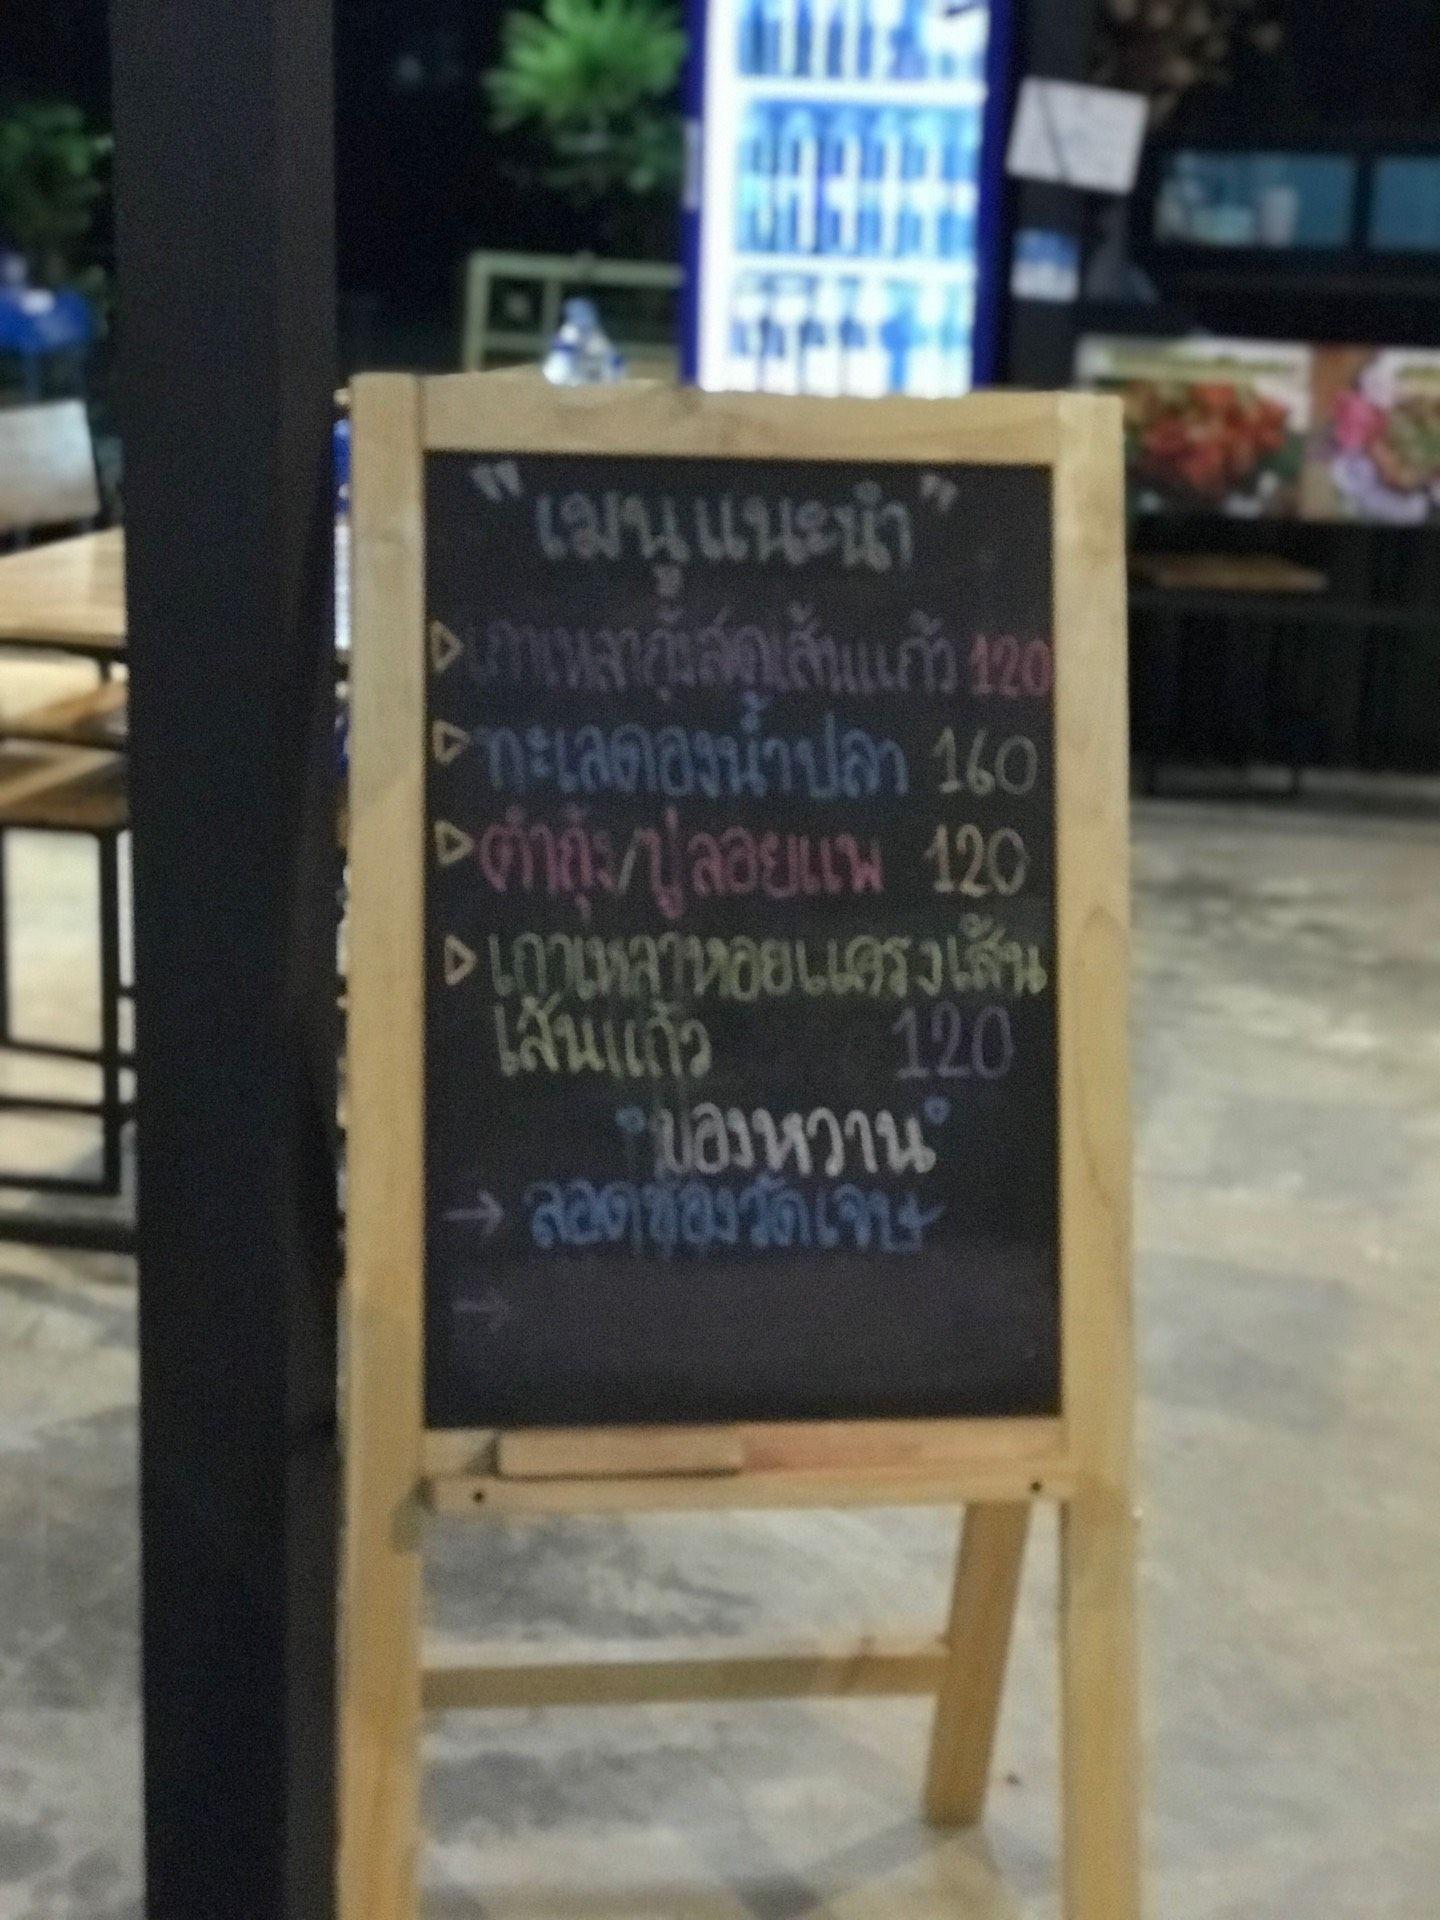 "เมนูแนะนำ"
เกาเหลากุ้งสดเส้นแก้ว 120
ทะเลดองน้ำปลา 160
ตำกุ้ง/ปู ลอยแพ 120
เกาเหลาหอยแครงเส้น
เส้นแก้ว 120
"ของหวาน"
→ ลอดช่องวัดเจษ
→